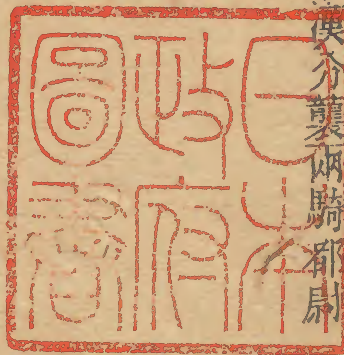 漢分襲兩騎都尉
日本
政府
圖書